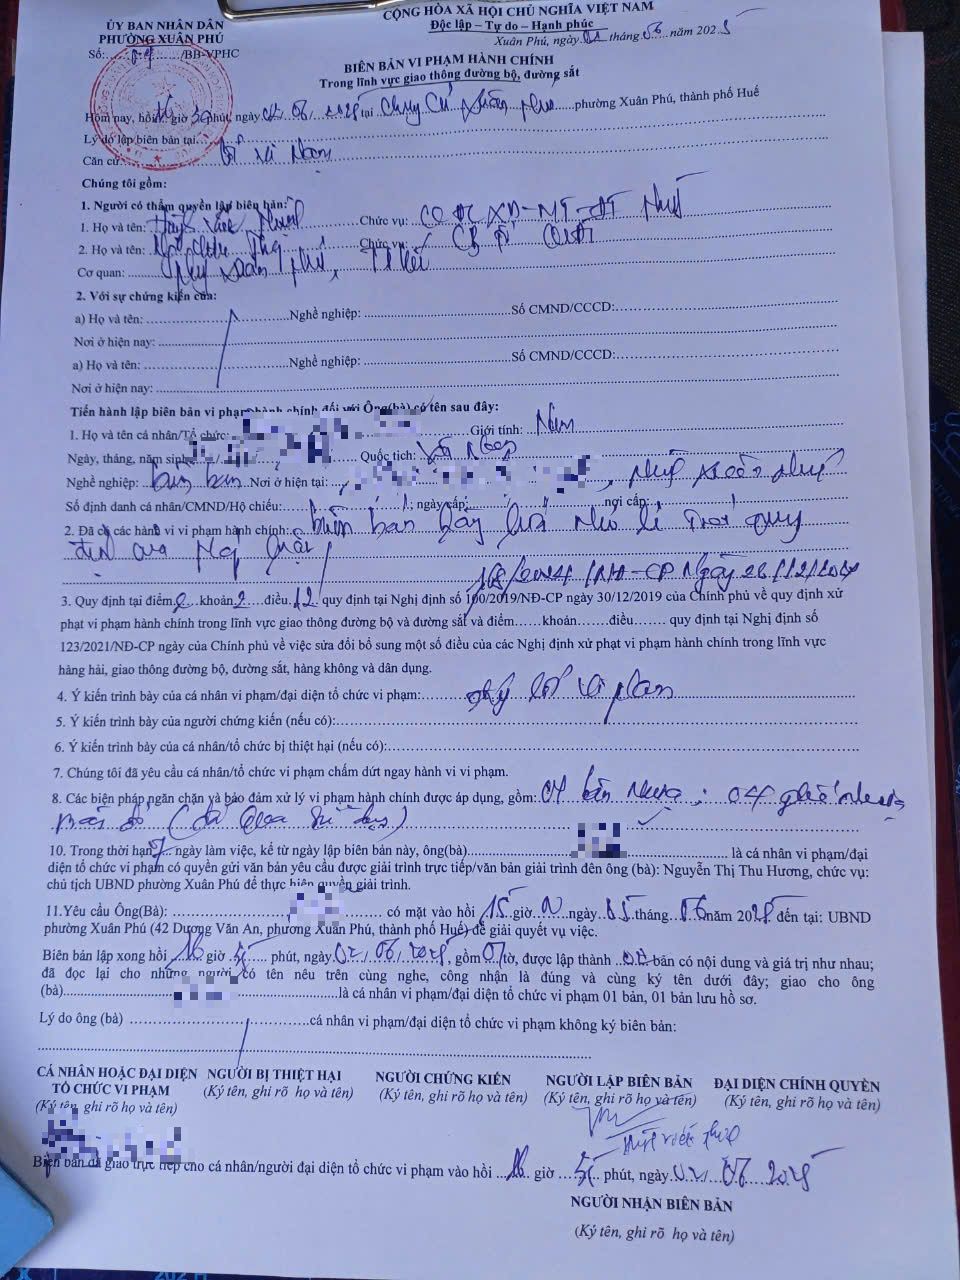 ỦY BAN NHÂN DÂN
PHƯỜNG XUÂN PHÚ
Số: ........../BB-VPHC
CỘNG HÒA XÃ HỘI CHỦ NGHĨA VIỆT NAM
Độc lập – Tự do – Hạnh phúc
Xuân Phú, ngày 02 tháng 06 năm 2025
BIÊN BẢN VI PHẠM HÀNH CHÍNH
Trong lĩnh vực giao thông đường bộ, đường sắt
Hôm nay, hồi 16 giờ 30 phút, ngày 02/06/2025 tại Chung Cư Xuân Phú phường Xuân Phú, thành phố Huế
Lý do lập biên bản tại
Căn cứ
Chúng tôi gồm:
1. Người có thẩm quyền lập biên bản:
1. Họ và tên: Chức vụ:
2. Họ và tên: Chức vụ:
Cơ quan: Xuân Phú, TP Huế
2. Với sự chứng kiến của:
a) Họ và tên: Nghề nghiệp: Số CMND/CCCD:
Nơi ở hiện nay:
a) Họ và tên: Nghề nghiệp: Số CMND/CCCD:
Nơi ở hiện nay:
Tiến hành lập biên bản vi phạm hành chính đối với Ông(bà) có tên sau đây:
1. Họ và tên cá nhân/Tổ chức: Giới tính: Nam
Ngày, tháng, năm sinh: Quốc tịch: Việt Nam
Nghề nghiệp: buôn bán Nơi ở hiện tại: , Xuân Phú
Số định danh cá nhân/CMND/Hộ chiếu: ; ngày cấp: ; nơi cấp:
2. Đã có các hành vi vi phạm hành chính: buôn bán bày hàng nhỏ lẻ trái quy
định của pháp luật
168/2024/NĐ-CP Ngày 26/12/2024
3. Quy định tại điểm khoản 2 điều 12 quy định tại Nghị định số 100/2019/NĐ-CP ngày 30/12/2019 của Chính phủ về quy định xử
phạt vi phạm hành chính trong lĩnh vực giao thông đường bộ và đường sắt và điểm......khoản.......điều....... quy định tại Nghị định số
123/2021/NĐ-CP ngày của Chính phủ về việc sửa đổi bổ sung một số điều của các Nghị định xử phạt vi phạm hành chính trong lĩnh vực
hàng hải, giao thông đường bộ, đường sắt, hàng không và dân dụng.
4. Ý kiến trình bày của cá nhân vi phạm/đại diện tổ chức vi phạm: vi phạm
5. Ý kiến trình bày của người chứng kiến (nếu có):
6. Ý kiến trình bày của cá nhân/tổ chức bị thiệt hại (nếu có):
7. Chúng tôi đã yêu cầu cá nhân/tổ chức vi phạm chấm dứt ngay hành vi vi phạm.
8. Các biện pháp ngăn chặn và bảo đảm xử lý vi phạm hành chính được áp dụng, gồm: 04 bàn nhựa, 04 ghế nhựa
màu đỏ (đã qua sử dụng)
10. Trong thời hạn 2 ngày làm việc, kể từ ngày lập biên bản này, ông(bà) là cá nhân vi phạm/đại
diện tổ chức vi phạm có quyền gửi văn bản yêu cầu được giải trình trực tiếp/văn bản giải trình đến ông (bà): Nguyễn Thị Thu Hương, chức vụ:
chủ tịch UBND phường Xuân Phú để thực hiện quyền giải trình.
11.Yêu cầu Ông(Bà): có mặt vào hồi 15 giờ 00 ngày 05 tháng 06 năm 2025 đến tại: UBND
phường Xuân Phú (42 Dương Văn An, phường Xuân Phú, thành phố Huế) để giải quyết vụ việc.
Biên bản lập xong hồi 16 giờ 55 phút, ngày 02/06/2025, gồm 01 tờ, được lập thành 02 bản có nội dung và giá trị như nhau;
đã đọc lại cho những người có tên nêu trên cùng nghe, công nhận là đúng và cùng ký tên dưới đây; giao cho ông
(bà) là cá nhân vi phạm/đại diện tổ chức vi phạm 01 bản, 01 bản lưu hồ sơ.
Lý do ông (bà) cá nhân vi phạm/đại diện tổ chức vi phạm không ký biên bản:
CÁ NHÂN HOẶC ĐẠI DIỆN TỔ CHỨC VI PHẠM
(Ký tên, ghi rõ họ và tên)
NGƯỜI BỊ THIỆT HẠI
(Ký tên, ghi rõ họ và tên)
NGƯỜI CHỨNG KIẾN
(Ký tên, ghi rõ họ và tên)
NGƯỜI LẬP BIÊN BẢN
(Ký tên, ghi rõ họ và tên)
ĐẠI DIỆN CHÍNH QUYỀN
(Ký tên, ghi rõ họ và tên)
Biên bản đã giao trực tiếp cho cá nhân/người đại diện tổ chức vi phạm vào hồi 16 giờ 55 phút, ngày 02/06/2025
NGƯỜI NHẬN BIÊN BẢN
(Ký tên, ghi rõ họ và tên)